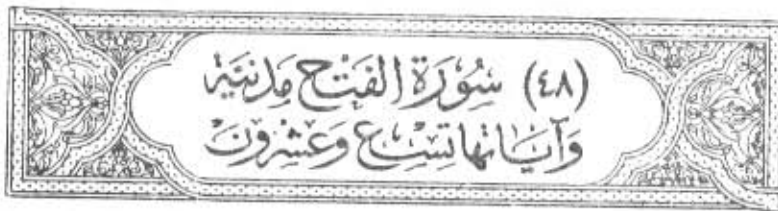 (٤٨) سُورَة الفَتْح مَدَنيَة
وَآيَاتها تِسْع وَعشرُونَ